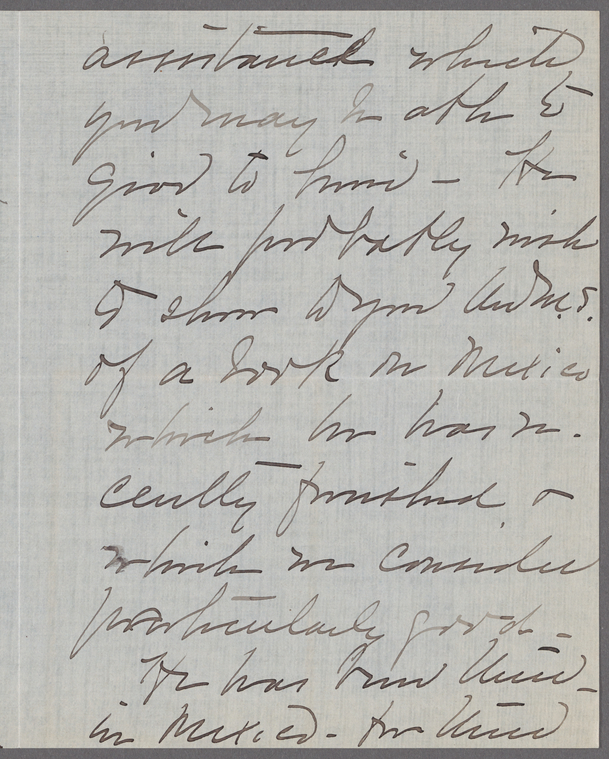 assistance which
you may be able to
give to him – He
will probably wish
to show to you the M.S.
of a book on Mexico
which he has re-
cently finished &
which we consider
particularly good –
He has been
in Mexico – for